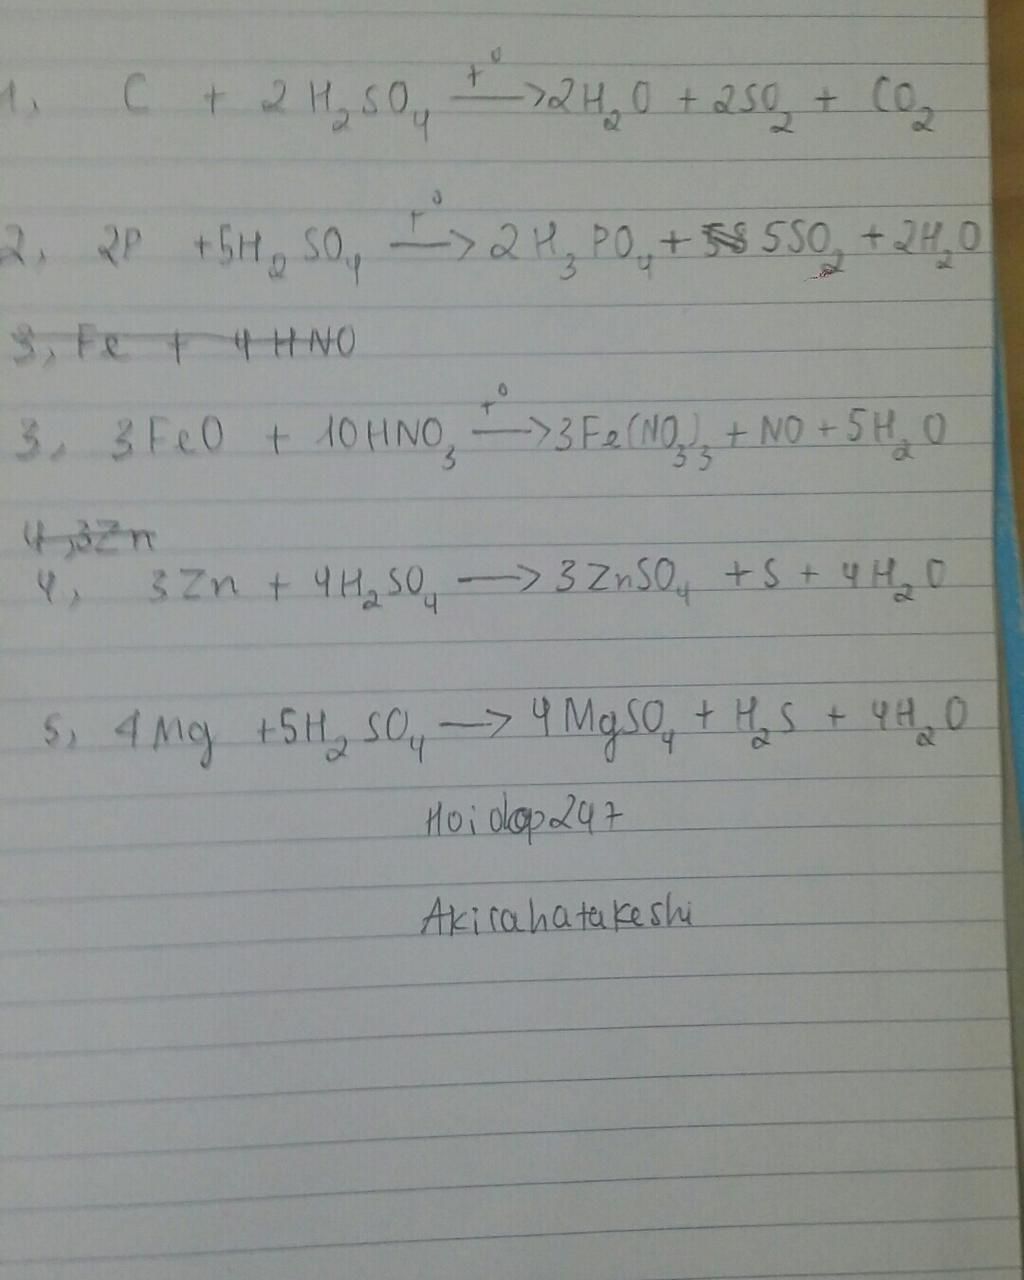 1, C + 2H₂SO₄ —t⁰→ 2H₂O + 2SO₂ + CO₂
2, 2P + 5H₂SO₄ —t⁰→ 2H₃PO₄ + 5SO₂ + 2H₂O
3, Fe + 4HNO
3, 3FeO + 10HNO₃ —t⁰→ 3Fe(NO₃)₃ + NO + 5H₂O
4, 3Zn
4, 3Zn + 4H₂SO₄ → 3ZnSO₄ + S + 4H₂O
5, 4Mg + 5H₂SO₄ → 4MgSO₄ + H₂S + 4H₂O
Hoidap247
Akirahatakeshi